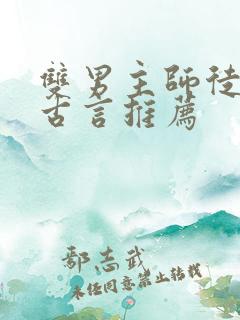 雙男主師徒
古言推薦
鄢志武
未经同意禁止转载